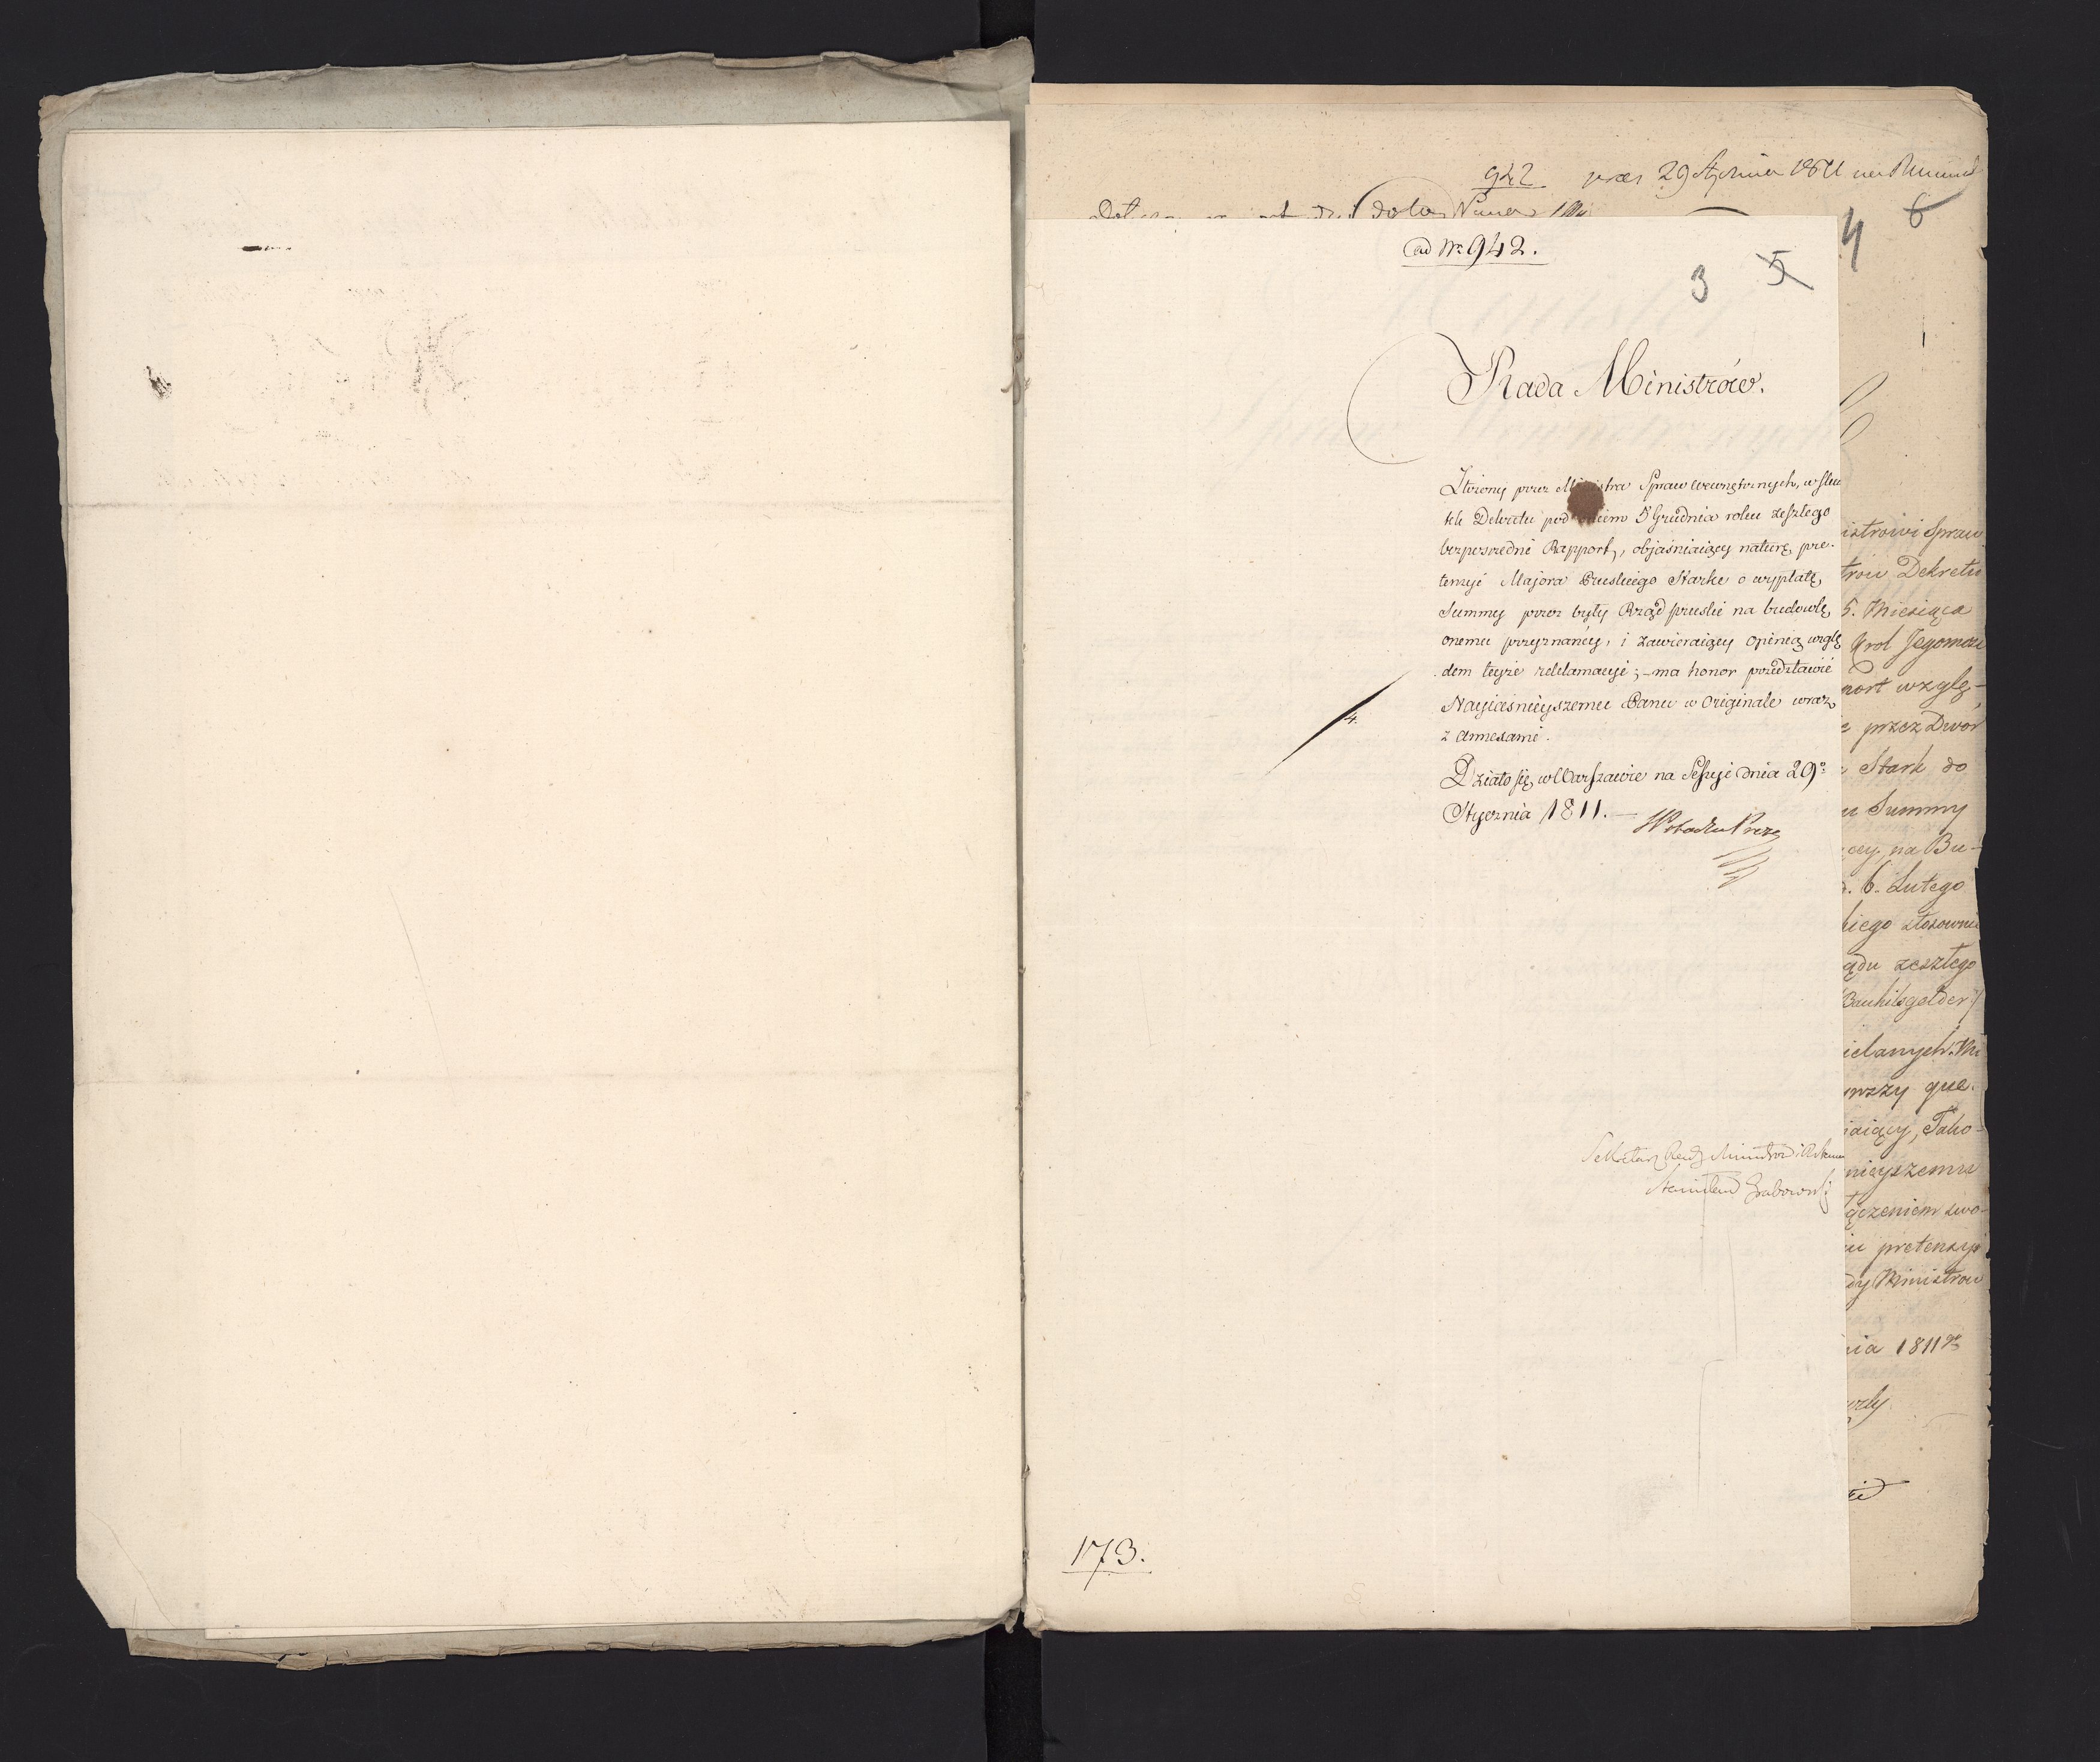 942 29 Stycznia 1811
ad Nro 942.
3 5
4 6
Rada Ministrów.
Złożony przez Ministra Spraw wewnętrznych, w sku
tek Dekretu pod dniem 5 Grudnia roku zeszłego
bezpośredni Rapport, objaśniaiący naturę pre-
tensyi Majora Pruskiego Starke o wypłatę
Summy przez były Rząd pruski na budowlę
onemu przyznaney, i zawieraiący opinią wzglę
dem teyże reklamacyi; – ma honor przedstawić
Nayiaśnieyszemu Panu w Originale wraz
z annexami.
4.
Działo się w Warszawie na Sessyi dnia 29o
Stycznia 1811. –
Sekretarz Rady Ministrów
Stanisław Grabowski
173.
istrowi Spraw
Dekretu
5. Miesiąca
Krol Jegomość
port wzglę-
przez Dwór
Stark do
Summy
cey na Bu-
6. Lutego
kiego stosownie
ądu zeszłego
Bauhilfsgelder
ielanych. Mi
wszy que
iaiący, Tako-
nieyszemu
ączeniem swo-
iu pretensyi
dy Ministrow
nia 1811